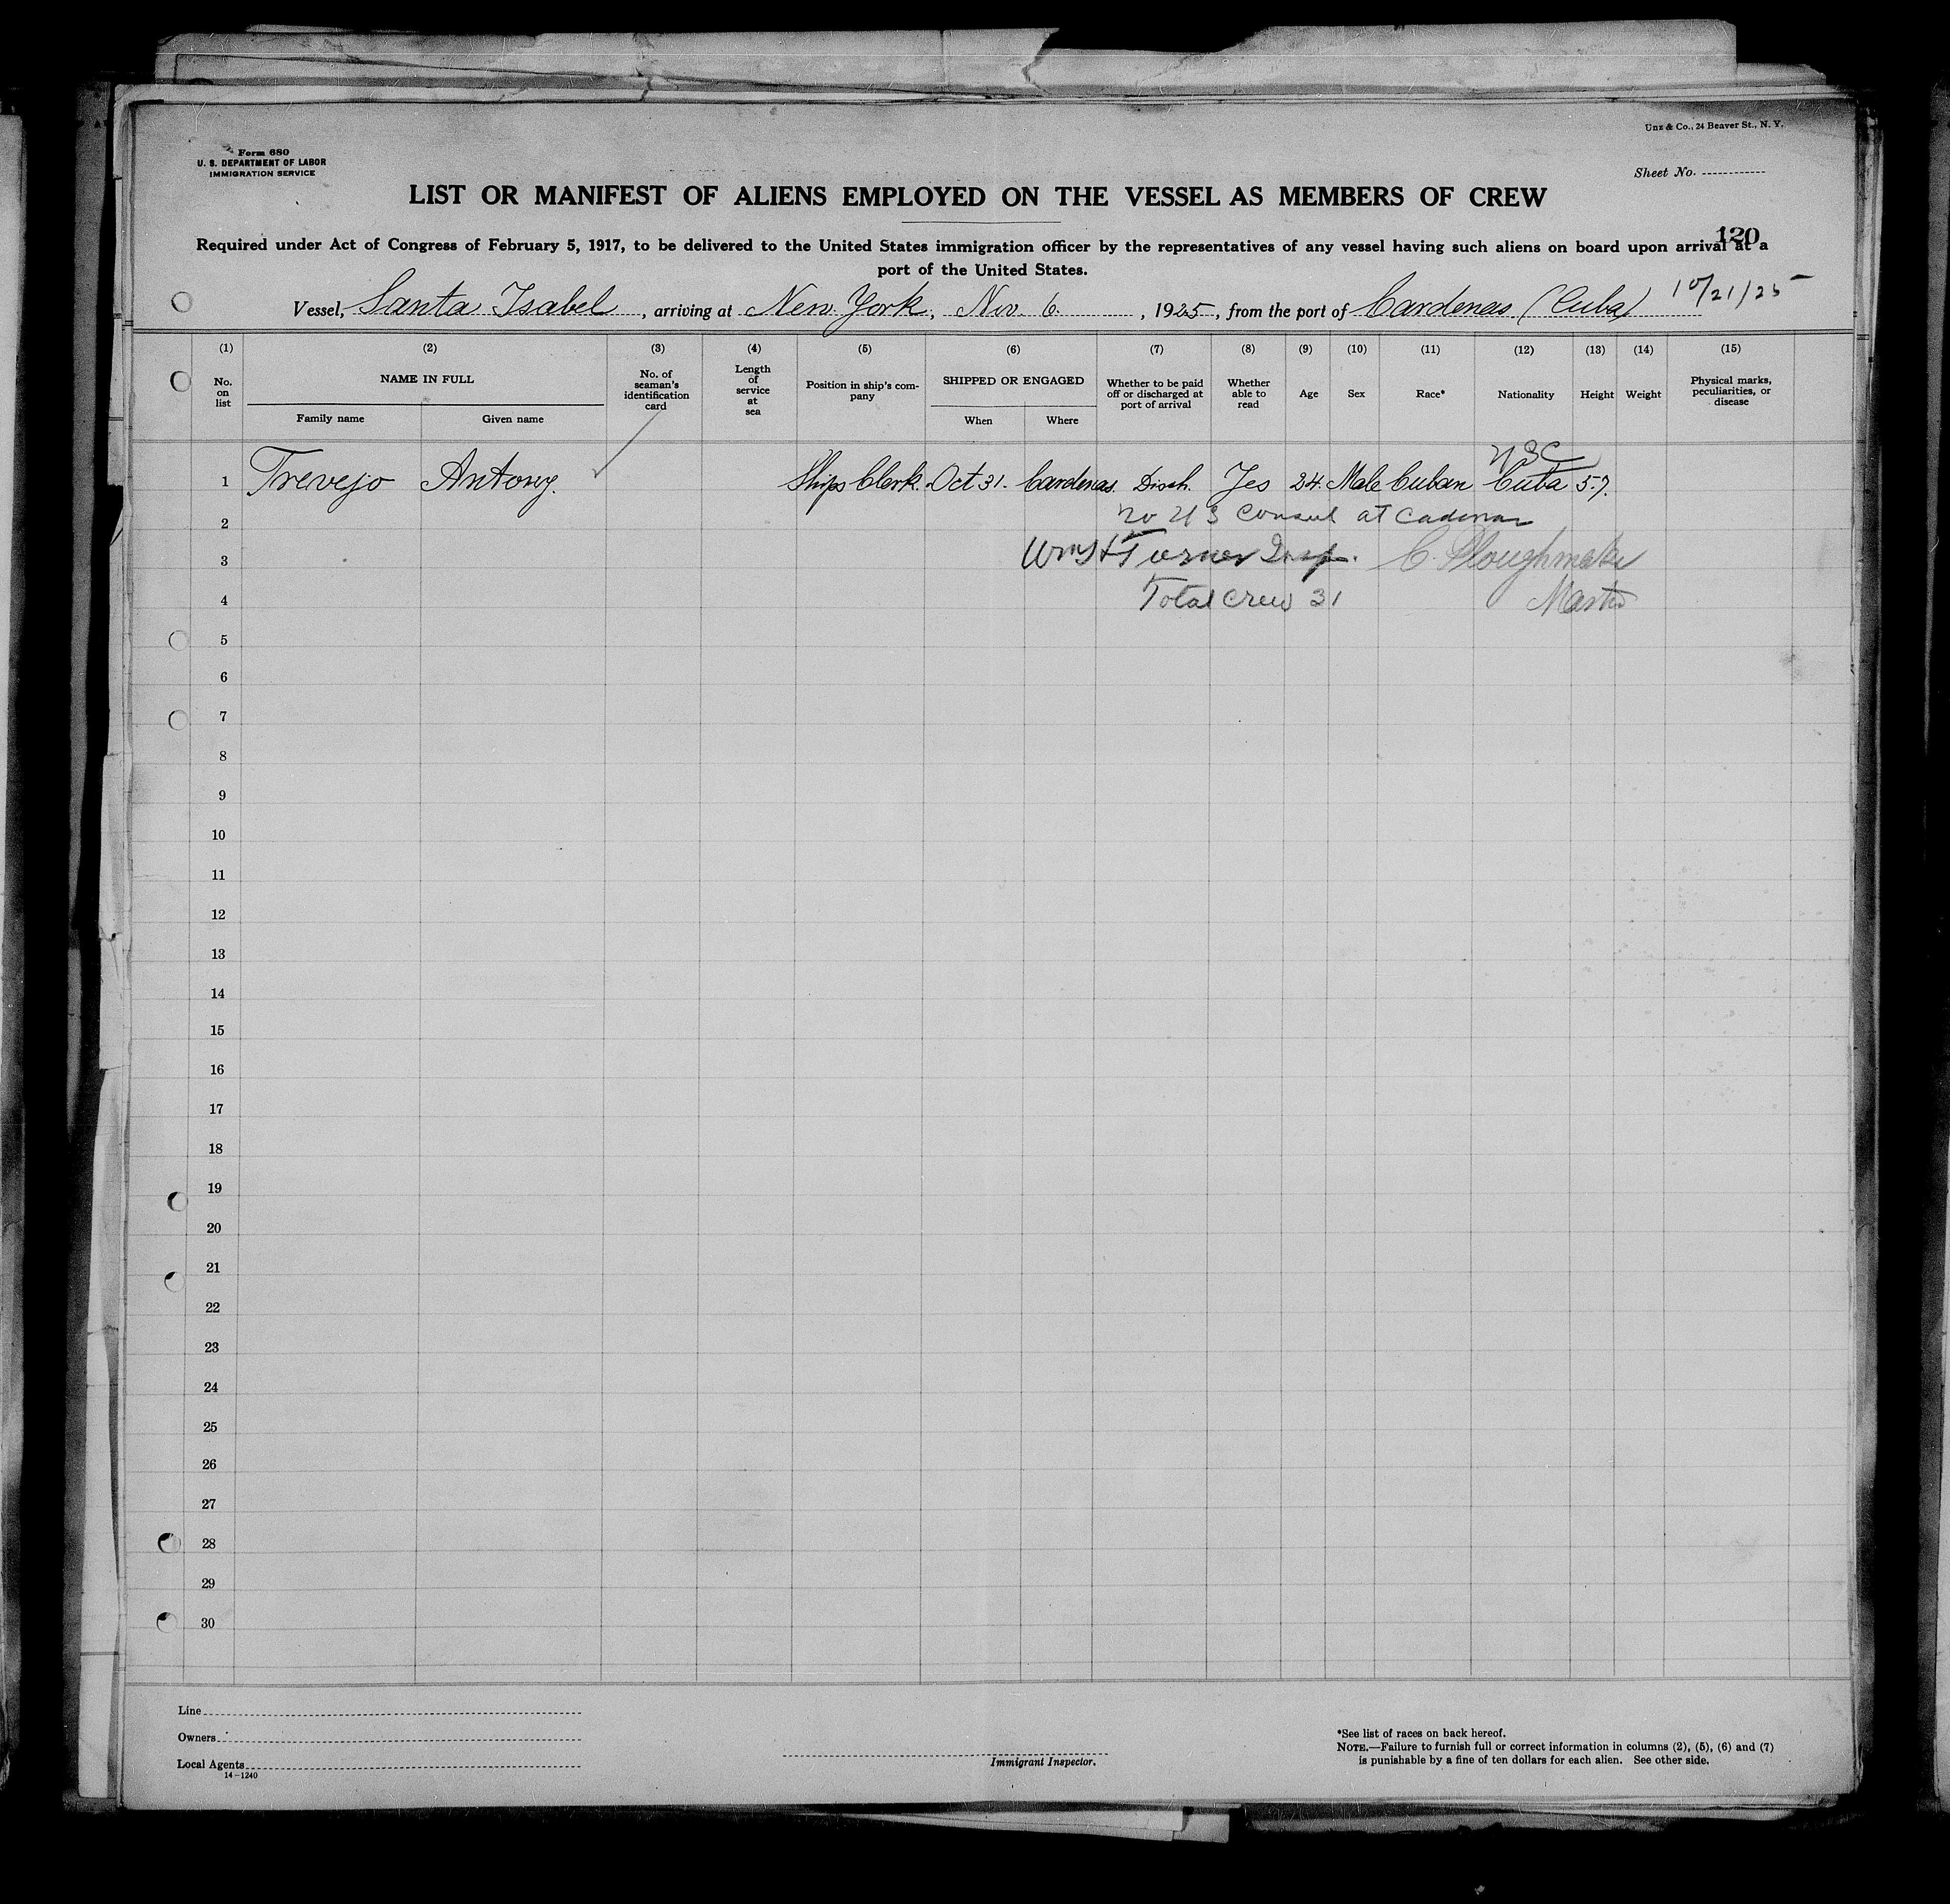 Unz & Co., 24 Beaver St., N. Y.
Form 680
U. S. DEPARTMENT OF LABOR
IMMIGRATION SERVICE
Sheet No.
LIST OR MANIFEST OF ALIENS EMPLOYED ON THE VESSEL AS MEMBERS OF CREW
120
Required under Act of Congress of February 5, 1917, to be delivered to the United States immigration officer by the representatives of any vessel having such aliens on board upon arrival at a
port of the United States.
10/21/25
Vessel, Santa Isabel, arriving at New York, Nov. 6., 1925, from the port of Cardenas (Cuba)
(1) (2) (3) (4) (5) (6) (7) (8) (9) (10) (11) (12) (13) (14) (15)
No. on list NAME IN FULL No. of seaman's identification card Length of service at sea Position in ship's com-pany SHIPPED OR ENGAGED Whether to be paid off or discharged at port of arrival Whether able to read Age Sex Race* Nationality Height Weight Physical marks, peculiarities, or disease
Family name Given name When Where
USC
1 Trevejo Antony. Ships Clerk. Oct 31. Cardenas. Disch. Yes 24. Male Cuban Cuba 5.7.
2 no US Consul at Cadenas
3 Wm H Turner Insp. C. Sloughmaker
4 Total crew 31 Master
5
6
7
8
9
10
11
12
13
14
15
16
17
18
19
20
21
22
23
24
25
26
27
28
29
30
Line
Owners
Local Agents
14-1240
Immigrant Inspector.
*See list of races on back hereof.
NOTE.—Failure to furnish full or correct information in columns (2), (5), (6) and (7)
is punishable by a fine of ten dollars for each alien. See other side.